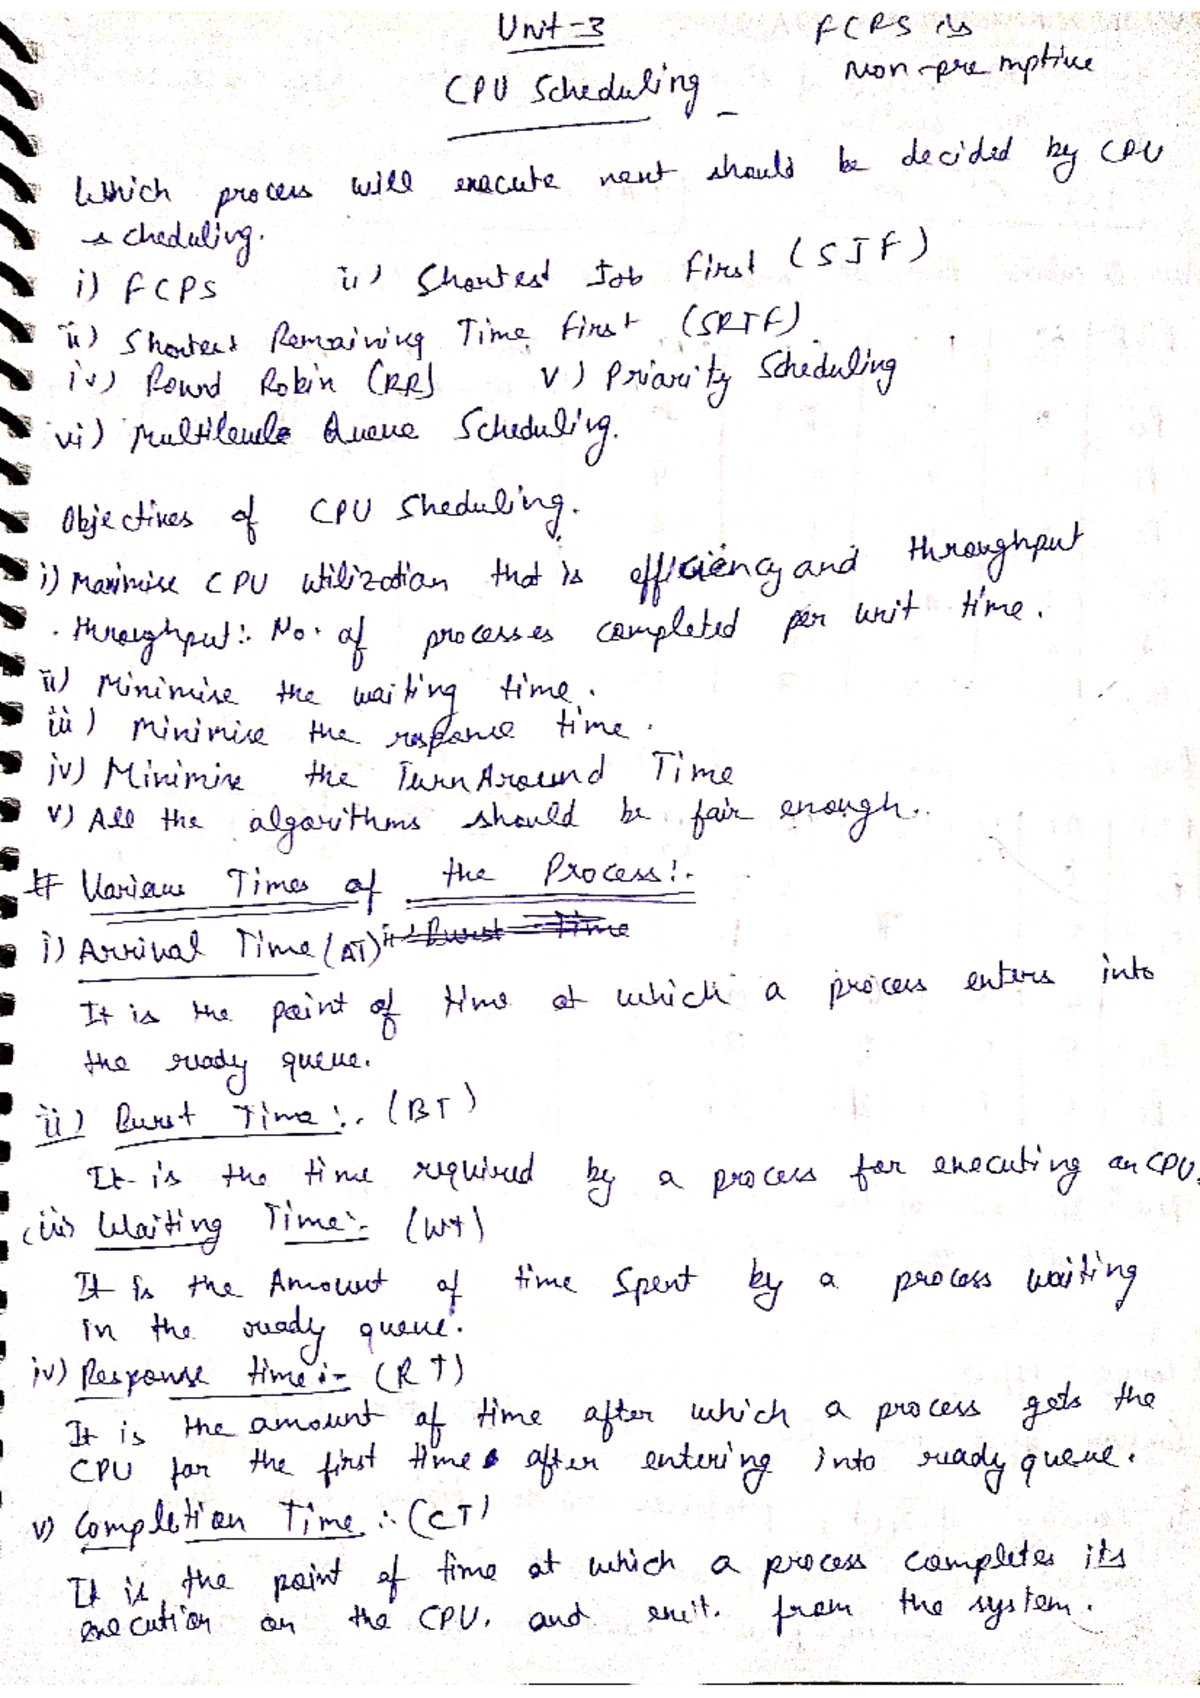 Unit-3
FCPS is
Non-premptive
CPU Scheduling
Which process will execute next should be decided by CPU
scheduling.
i) FCPS ii) Shortest Job First (SJF)
ii) Shortest Remaining Time First (SRTF)
iv) Round Robin (RR) v) Priority Scheduling
vi) Multilevele Queue Scheduling.
Objectives of CPU Sheduling.
i) Maximise CPU utilization that is efficiency and throughput
. throughput:. No. of processes completed per unit time.
ii) Minimise the waiting time.
iii) Minimise the response time.
iv) Minimise the Turn Around Time
v) All the algorithms should be fair enough..
# Various Times of the Process:.
i) Arrival Time (AT) ii) Burst Time
It is the point of time at which a process enters into
the ready queue.
ii) Burst Time:. (BT)
It is the time required by a process for executing on CPU.
(iii) Waiting Time:- (WT)
It is the Amount of time Spent by a process waiting
in the ready queue.
iv) Response time:- (RT)
It is the amount of time after which a process gets the
CPU for the first time after entering into ready queue.
v) Completion Time :. (CT)
It is the point of time at which a process completes its
execution on the CPU. and exit. from the system.